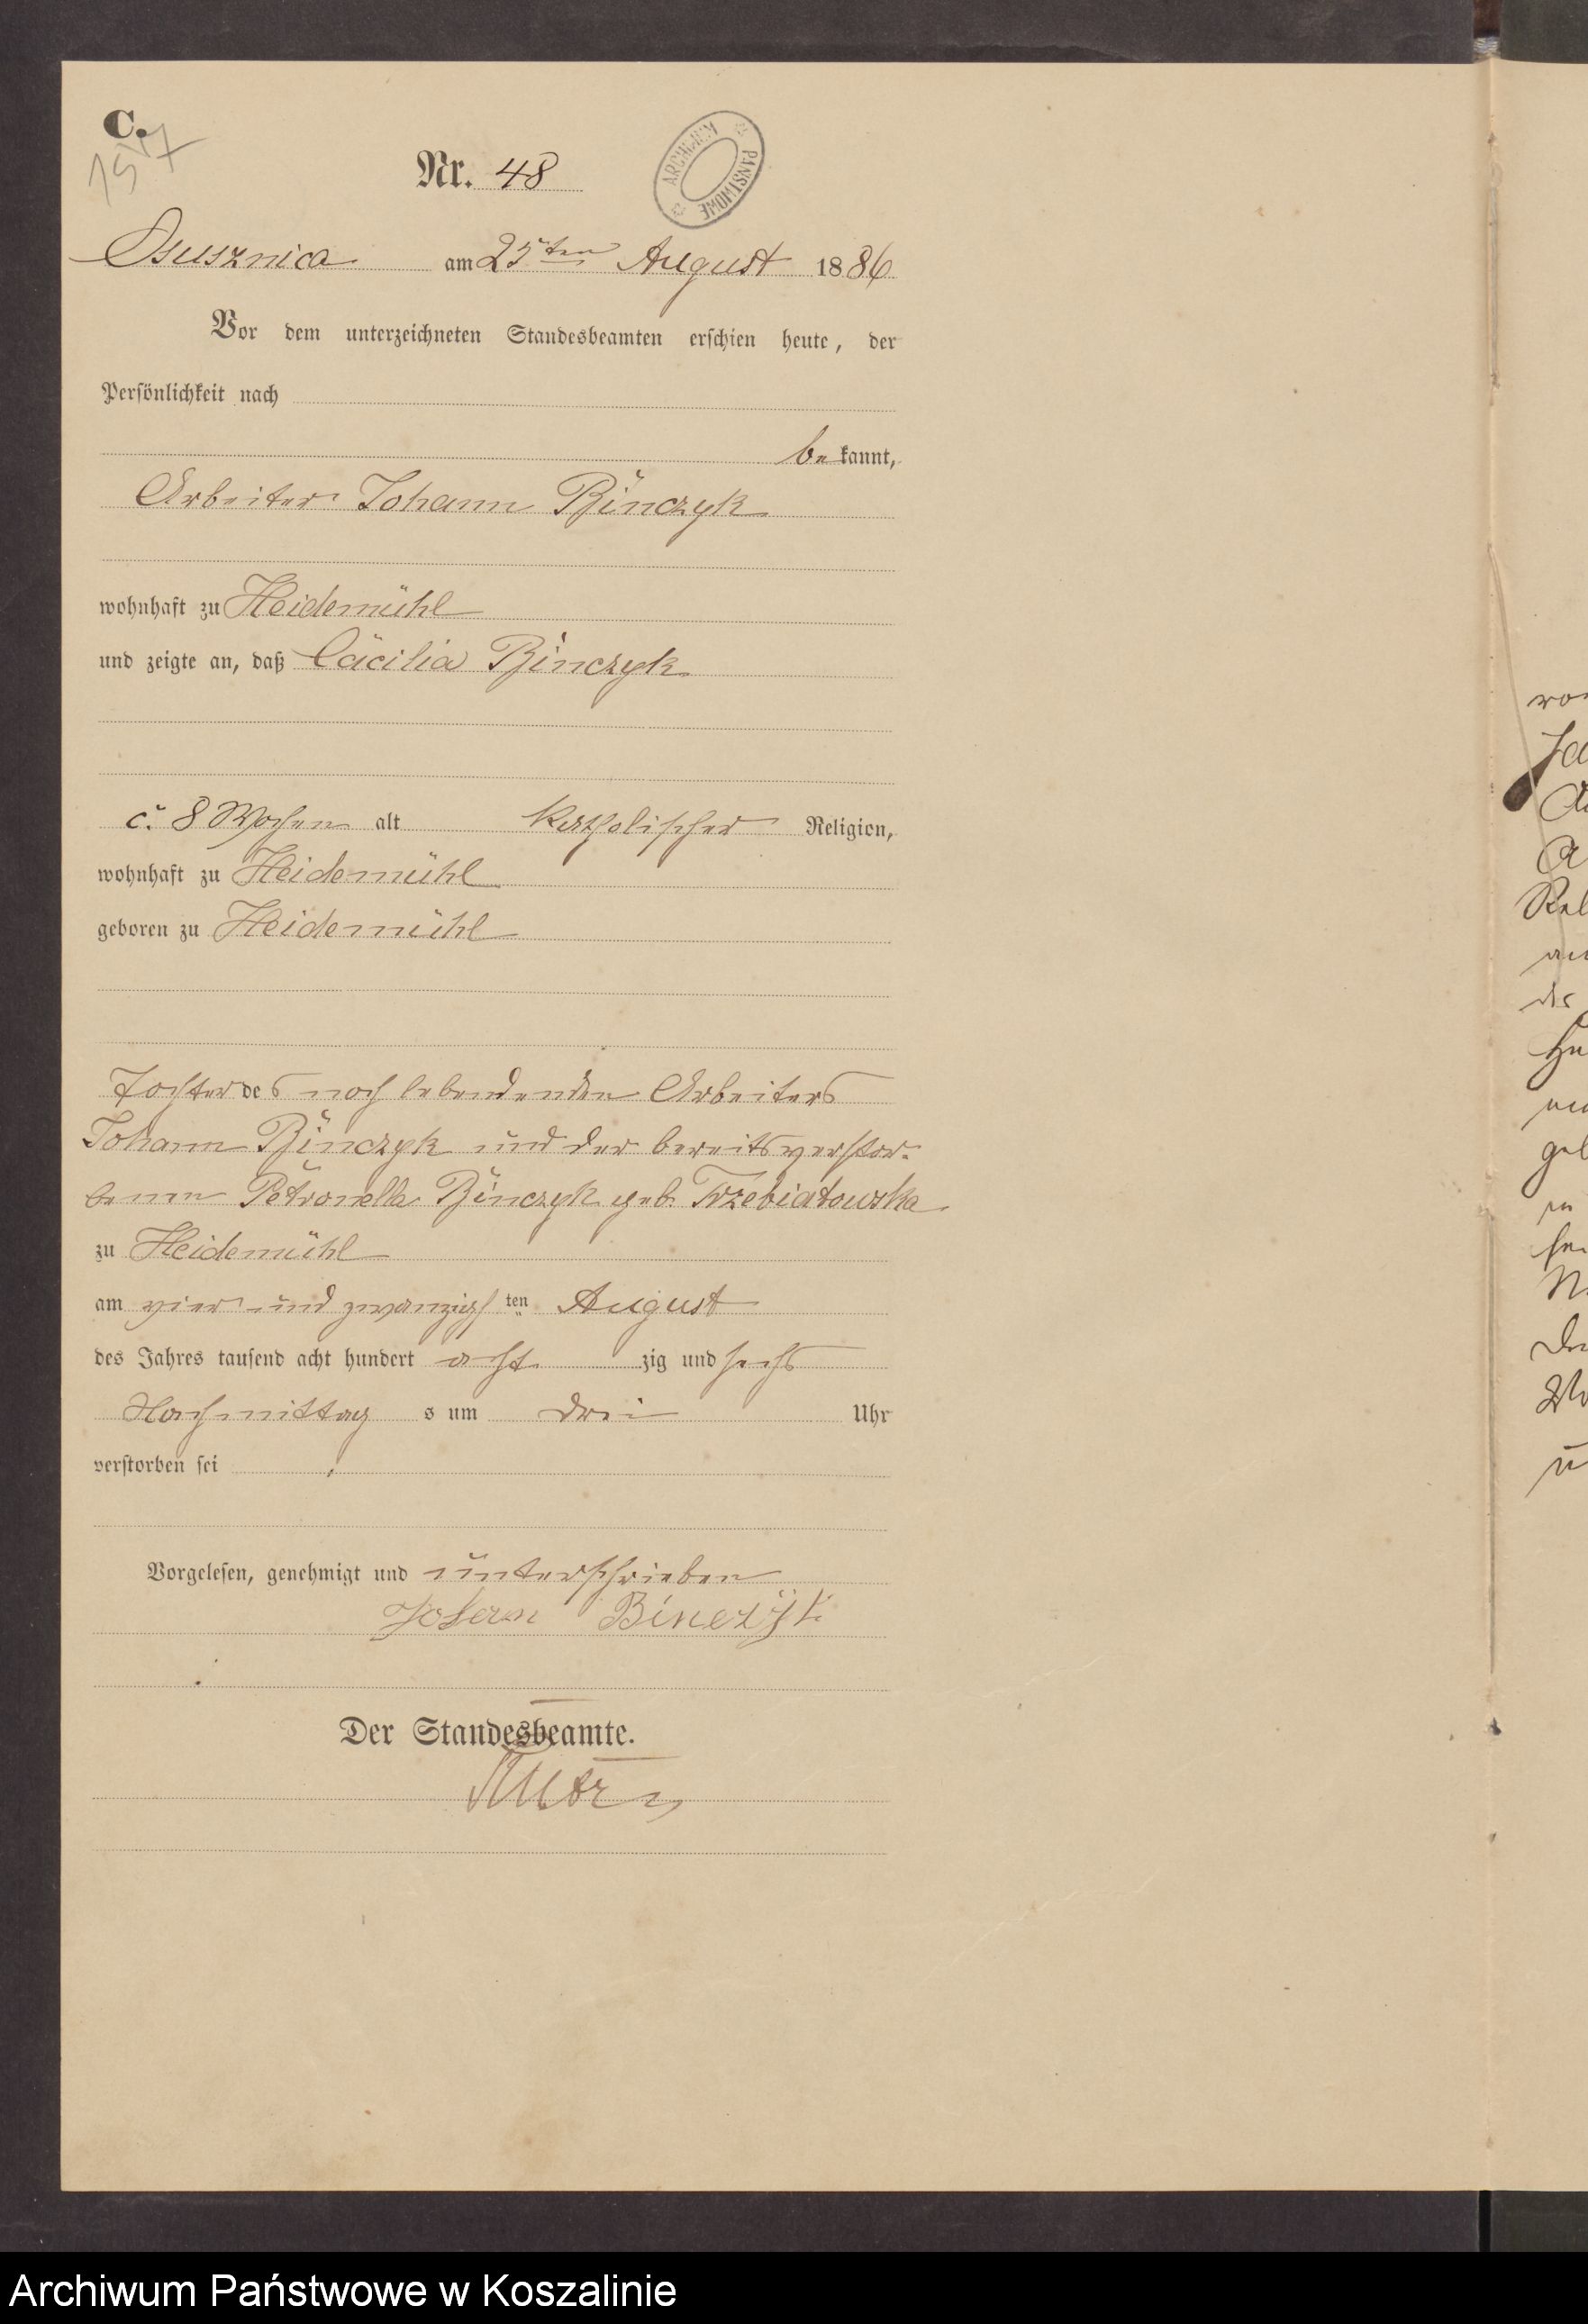 C.
157
Nr. 48
ARCHIWUM PAŃSTWOWE
Osusznica am 25ten August 1886
Vor dem unterzeichneten Standesbeamten erschien heute, der
Persönlichkeit nach
be kannt,
Arbeiter Johann Binczyk
wohnhaft zu Heidemühl
und zeigte an, daß Cäcilia Binczyk
c. 8 Wochen alt katholischer Religion,
wohnhaft zu Heidemühl
geboren zu Heidemühl
Tochter des noch lebendenden Arbeiters
Johann Binczyk und der bereits verstor-
benen Petronella Binczyk geb. Trzebiatowska
zu Heidemühl
am vier und zwanzigsten August
des Jahres tausend acht hundert acht zig und sechs
Nachmittag s um drei Uhr
verstorben sei
Vorgelesen, genehmigt und unterschrieben
Johan Binczyk
Der Standesbeamte.
Archiwum Państwowe w Koszalinie